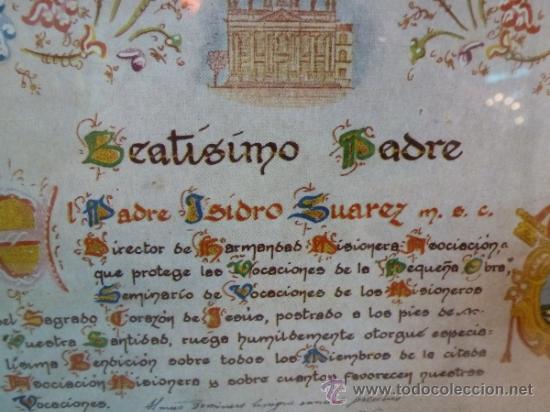 Beatísimo Padre
El Padre Isidro Suarez m. s. c.
Director de Harmandad Misionera Asociación
que protege las Vocaciones de la "Pequeña Obra,
Seminario de Vocaciones de los Misioneros
del Sagrado Corazón de Jesús, postrado a los pies de
Vuestra Santidad, ruega humildemente otorgué especia-
lísima Bendición sobre todos los Miembros de la citada
Asociación Misionera y sobre cuantos favorecen nuestras
Vocaciones.
todocoleccion.net